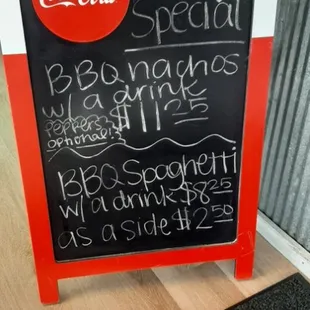 Coca-Cola
Special
BBQ nachos
w/ a drink
peppers? $11.25
optional!?
BBQ Spaghetti
w/ a drink $8.25
as a side $2.50